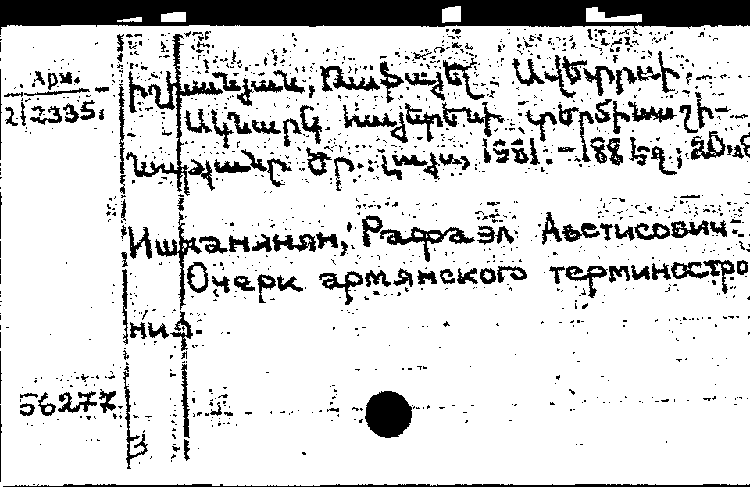 Арм.
2/2335.
Իշխանյան, Ռաֆայել Ավետիսի.
Ակնարկ հայերենի տերմինաշի-
նության. Եր., Լույս, 1981. - 188 էջ; 20սմ
Ишханянян, Рафаэл Аветисович.
Очерк армянского терминострo
ния.
56277